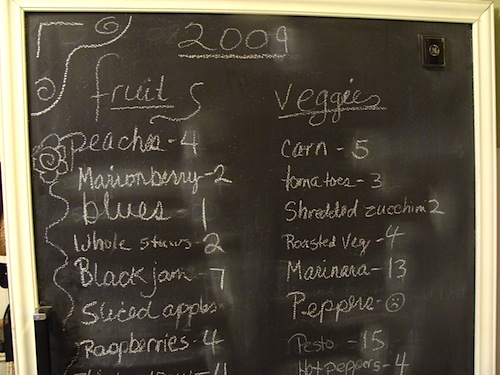 2009
fruits
peaches - 4
Marionberry - 2
blues - 1
Whole straws - 2
Black jam - 7
Sliced apples
Raspberries - 4
4
Veggies
Corn - 5
tomatoes - 3
Shredded zucchini 2
Roasted Veg - 4
Marinara - 13
Peppers - ☹
Pesto - 15
Hot peppers - 4
GE